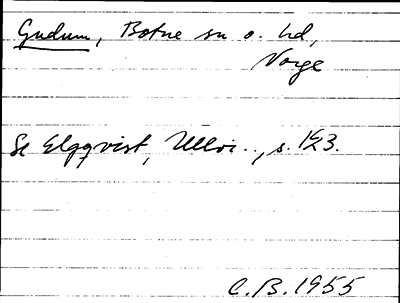 Gudum, Botne sn o. hd,
Norge
Se Elgqvist, Ullvi.., s. 123.
C.B. 1955